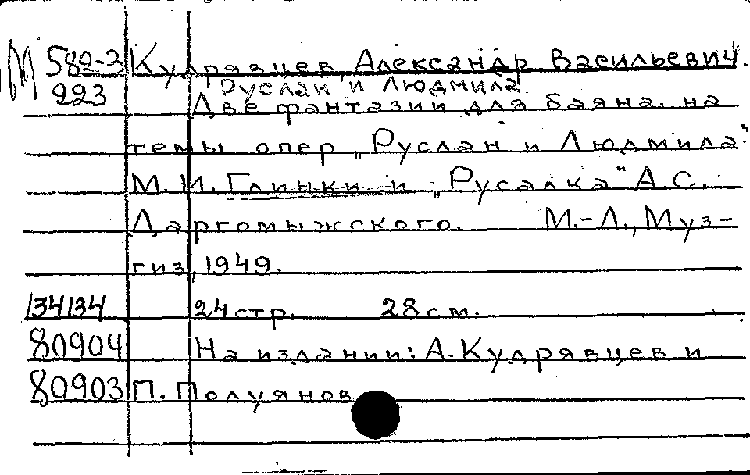 М 582-3 Кудрявцев, Александр Васильевич.
223 Руслан и Людмила.
Две фантазии для баяна. на
темы опер „Руслан и Людмила"
М. И. Глинки и „Русалка" А. С.
Даргомыжского. М.-Л., Муз-
гиз, 1949.
134134 24 стр. 28 см.
80904 На издании: А. Кудрявцев и
80903 П. Полуянов